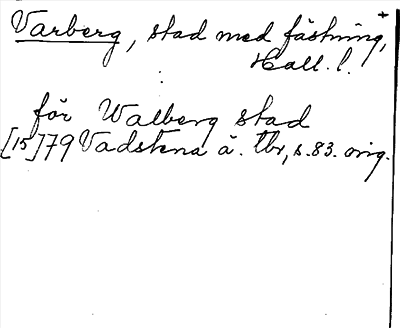 Varberg, stad med fästning,
Hall. l.
för Walberg stad
[15]79 Vadstena ä. tbr, s. 83. orig.